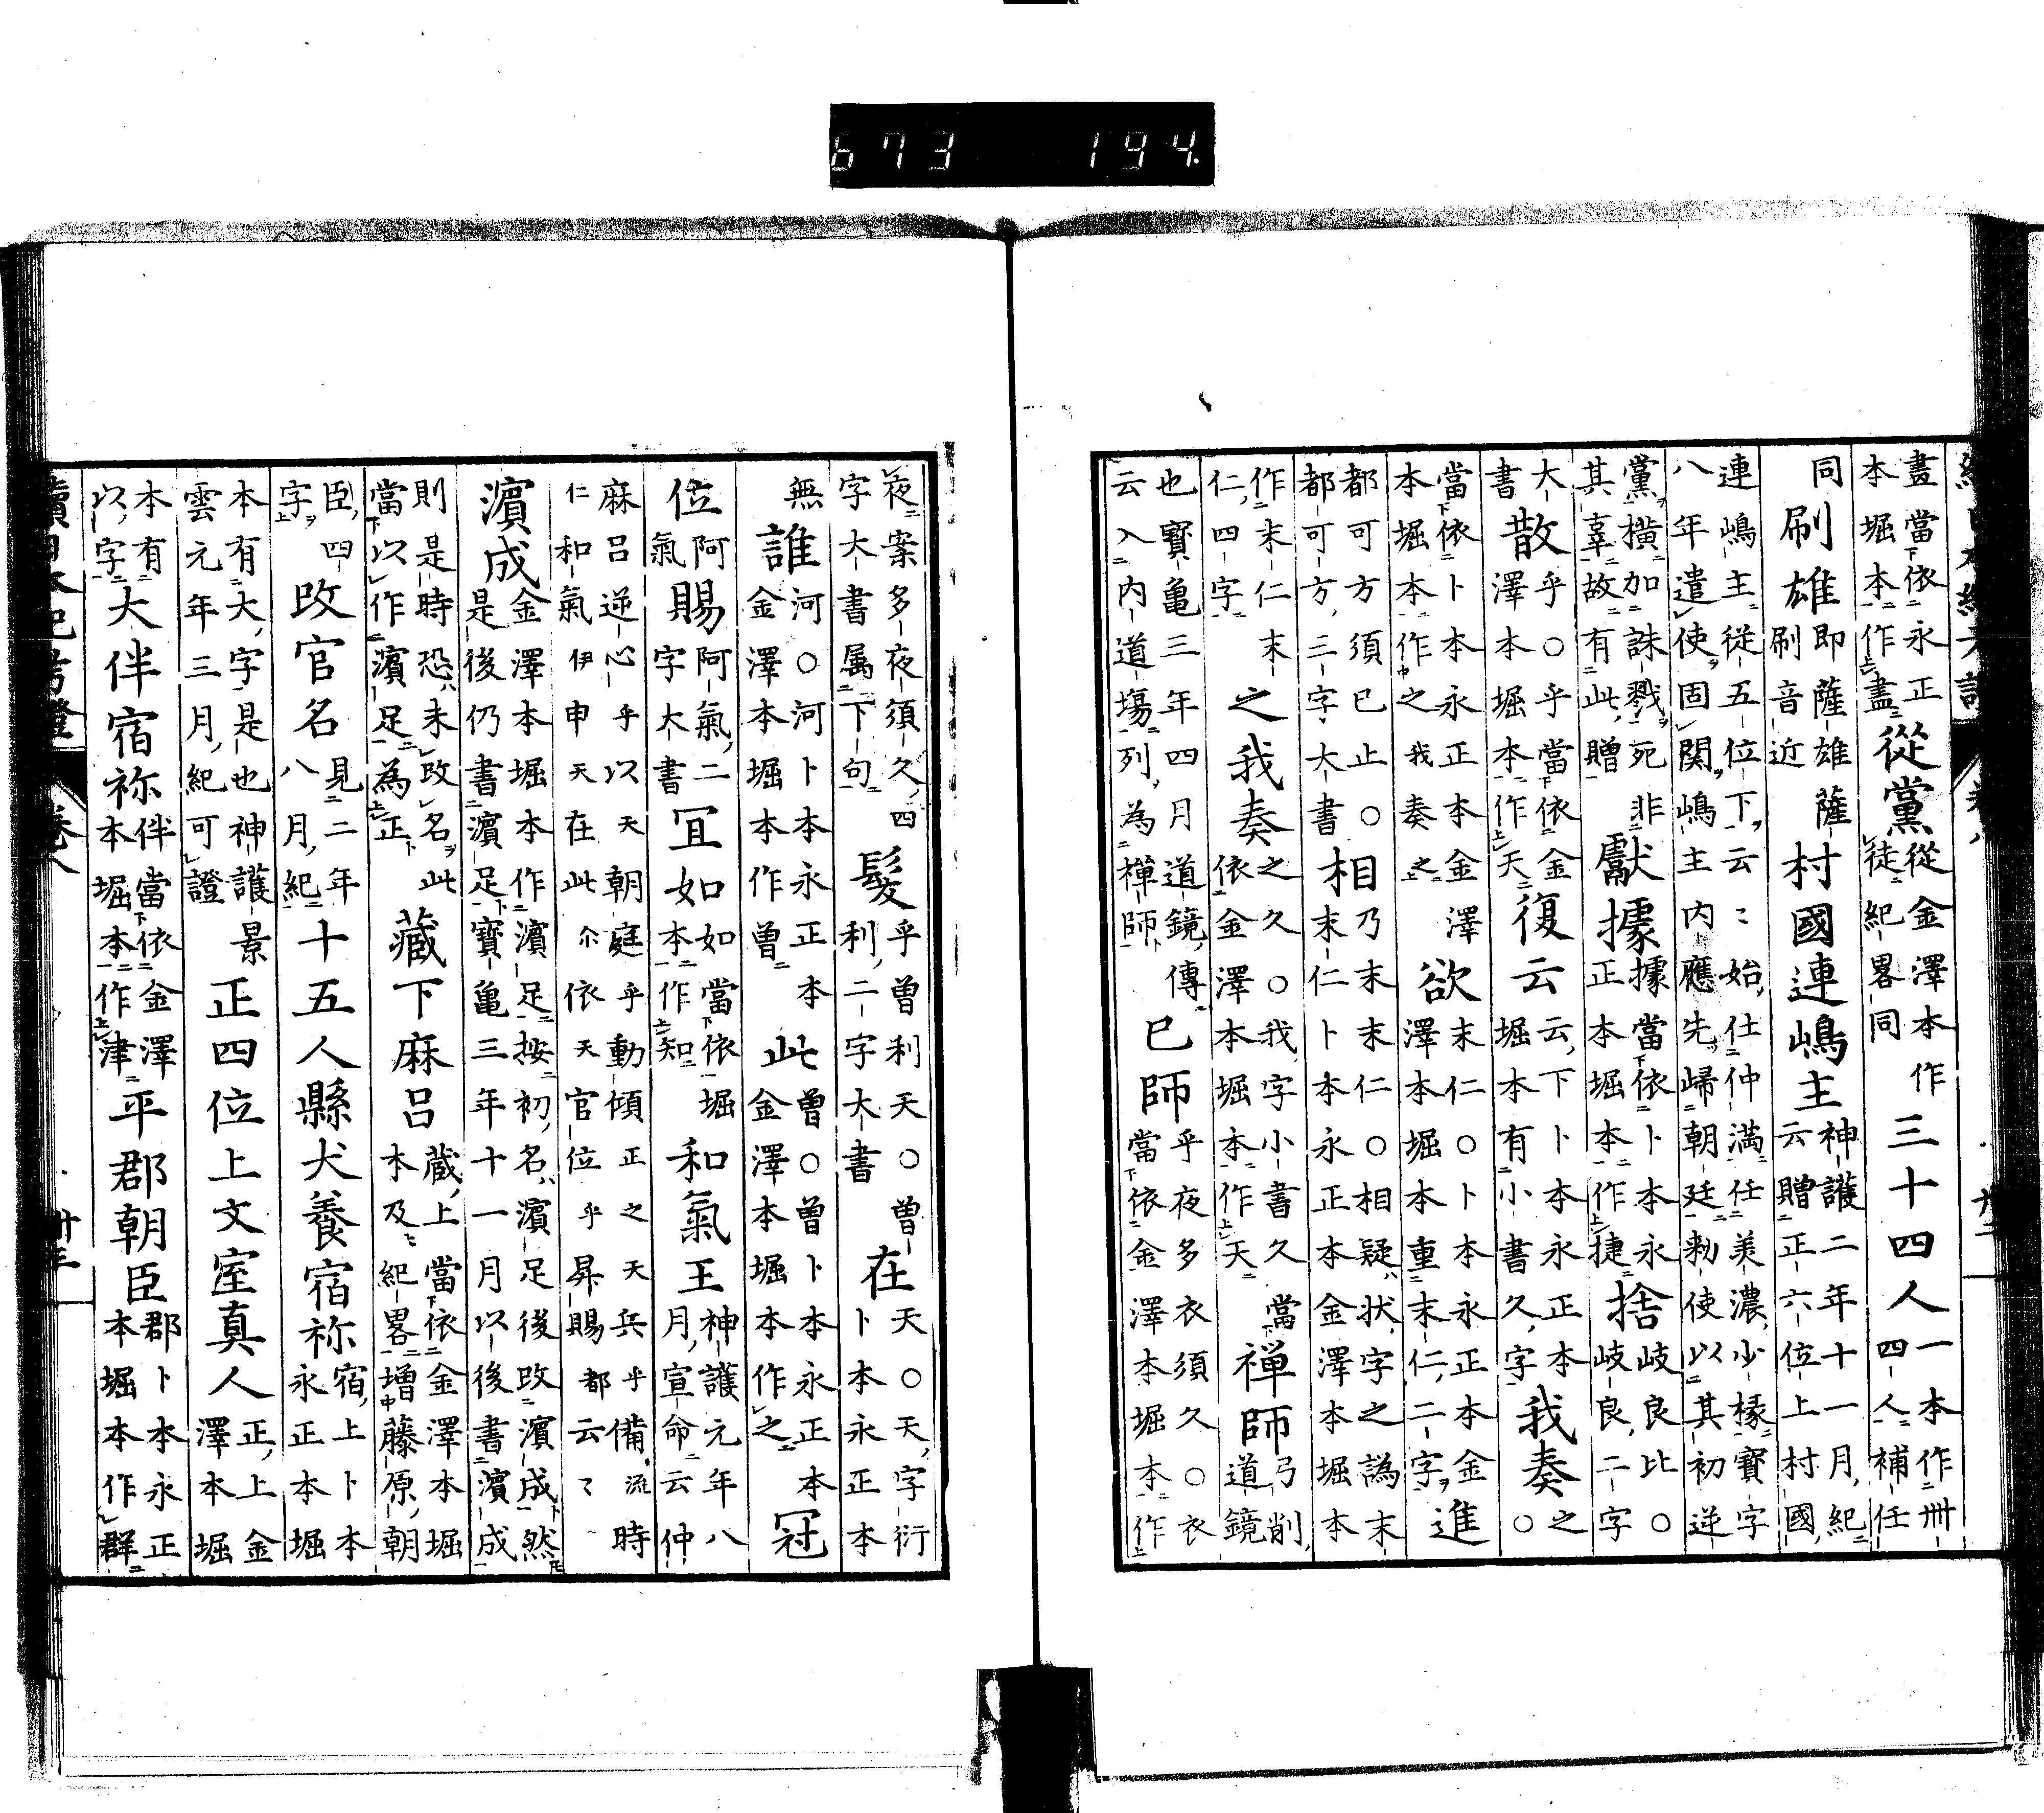 畫當依永正本堀本作盡從黨從金澤本作徒紀畧同三十四人一本作卅四人補任
同刷雄即薩雄薩刷音近村國連嶋主神護二年十一月紀云贈正六位上村國
連嶋主從五位下云〻始仕仲満任美濃少掾寶字八年遣使固関嶋主内應先歸朝廷勅使以其初逆
黨横加誅戮死非其辜故有此贈獻據據當依卜本永正本堀本作捷捨岐良比○岐良二字
大書散乎○乎當依金澤本堀本作天復云云下卜本永正本堀本有小書久字我奏之○
當依卜本永正本金澤本堀本作之我奏之欲末仁○卜本永正本金澤本堀本重末仁二字進
都可方須巳止○都可方三字大書相乃末末仁○相疑状字之譌末末仁卜本永正本金澤本堀本
作末仁末仁四字之我奏之久○我字小書久當依金澤本堀本作天禅師弓削道鏡
也寶亀三年四月道鏡傳云入内道場列為禅師巳師乎夜多衣須久○衣當依金澤本堀本作
夜案多夜須久四字大書属下句髮乎曽利天○曽利二字大書在天○天字衍卜本永正本
無誰河○河卜本永正本金澤本堀本作曽此曽○曽卜本永正本金澤本堀本作之冠
位阿氣賜阿阿氣二字大書冝如如當依堀本作知和氣王神護元年八月宣命云仲
麻呂逆心乎以天朝庭乎動傾正之天兵乎備流時仁和氣伊申天在此尓依天官位乎昇賜都云〻
濵成金澤本堀本作濵足按初名濵足後改濵成然是後仍書濵足寶亀三年十一月以後書濵成
則是時恐未改名此當以作濵足為正藏下麻呂蔵上當依金澤本堀本及紀畧増藤原朝
臣四字改官名見二年八月紀十五人縣犬養宿祢宿上卜本永正本堀
本有大字是也神護景雲元年三月紀可證正四位上文室真人正上金澤本堀
本有以字大伴宿祢伴當依金澤本堀本作津平郡朝臣郡卜本永正本堀本作群
673 194